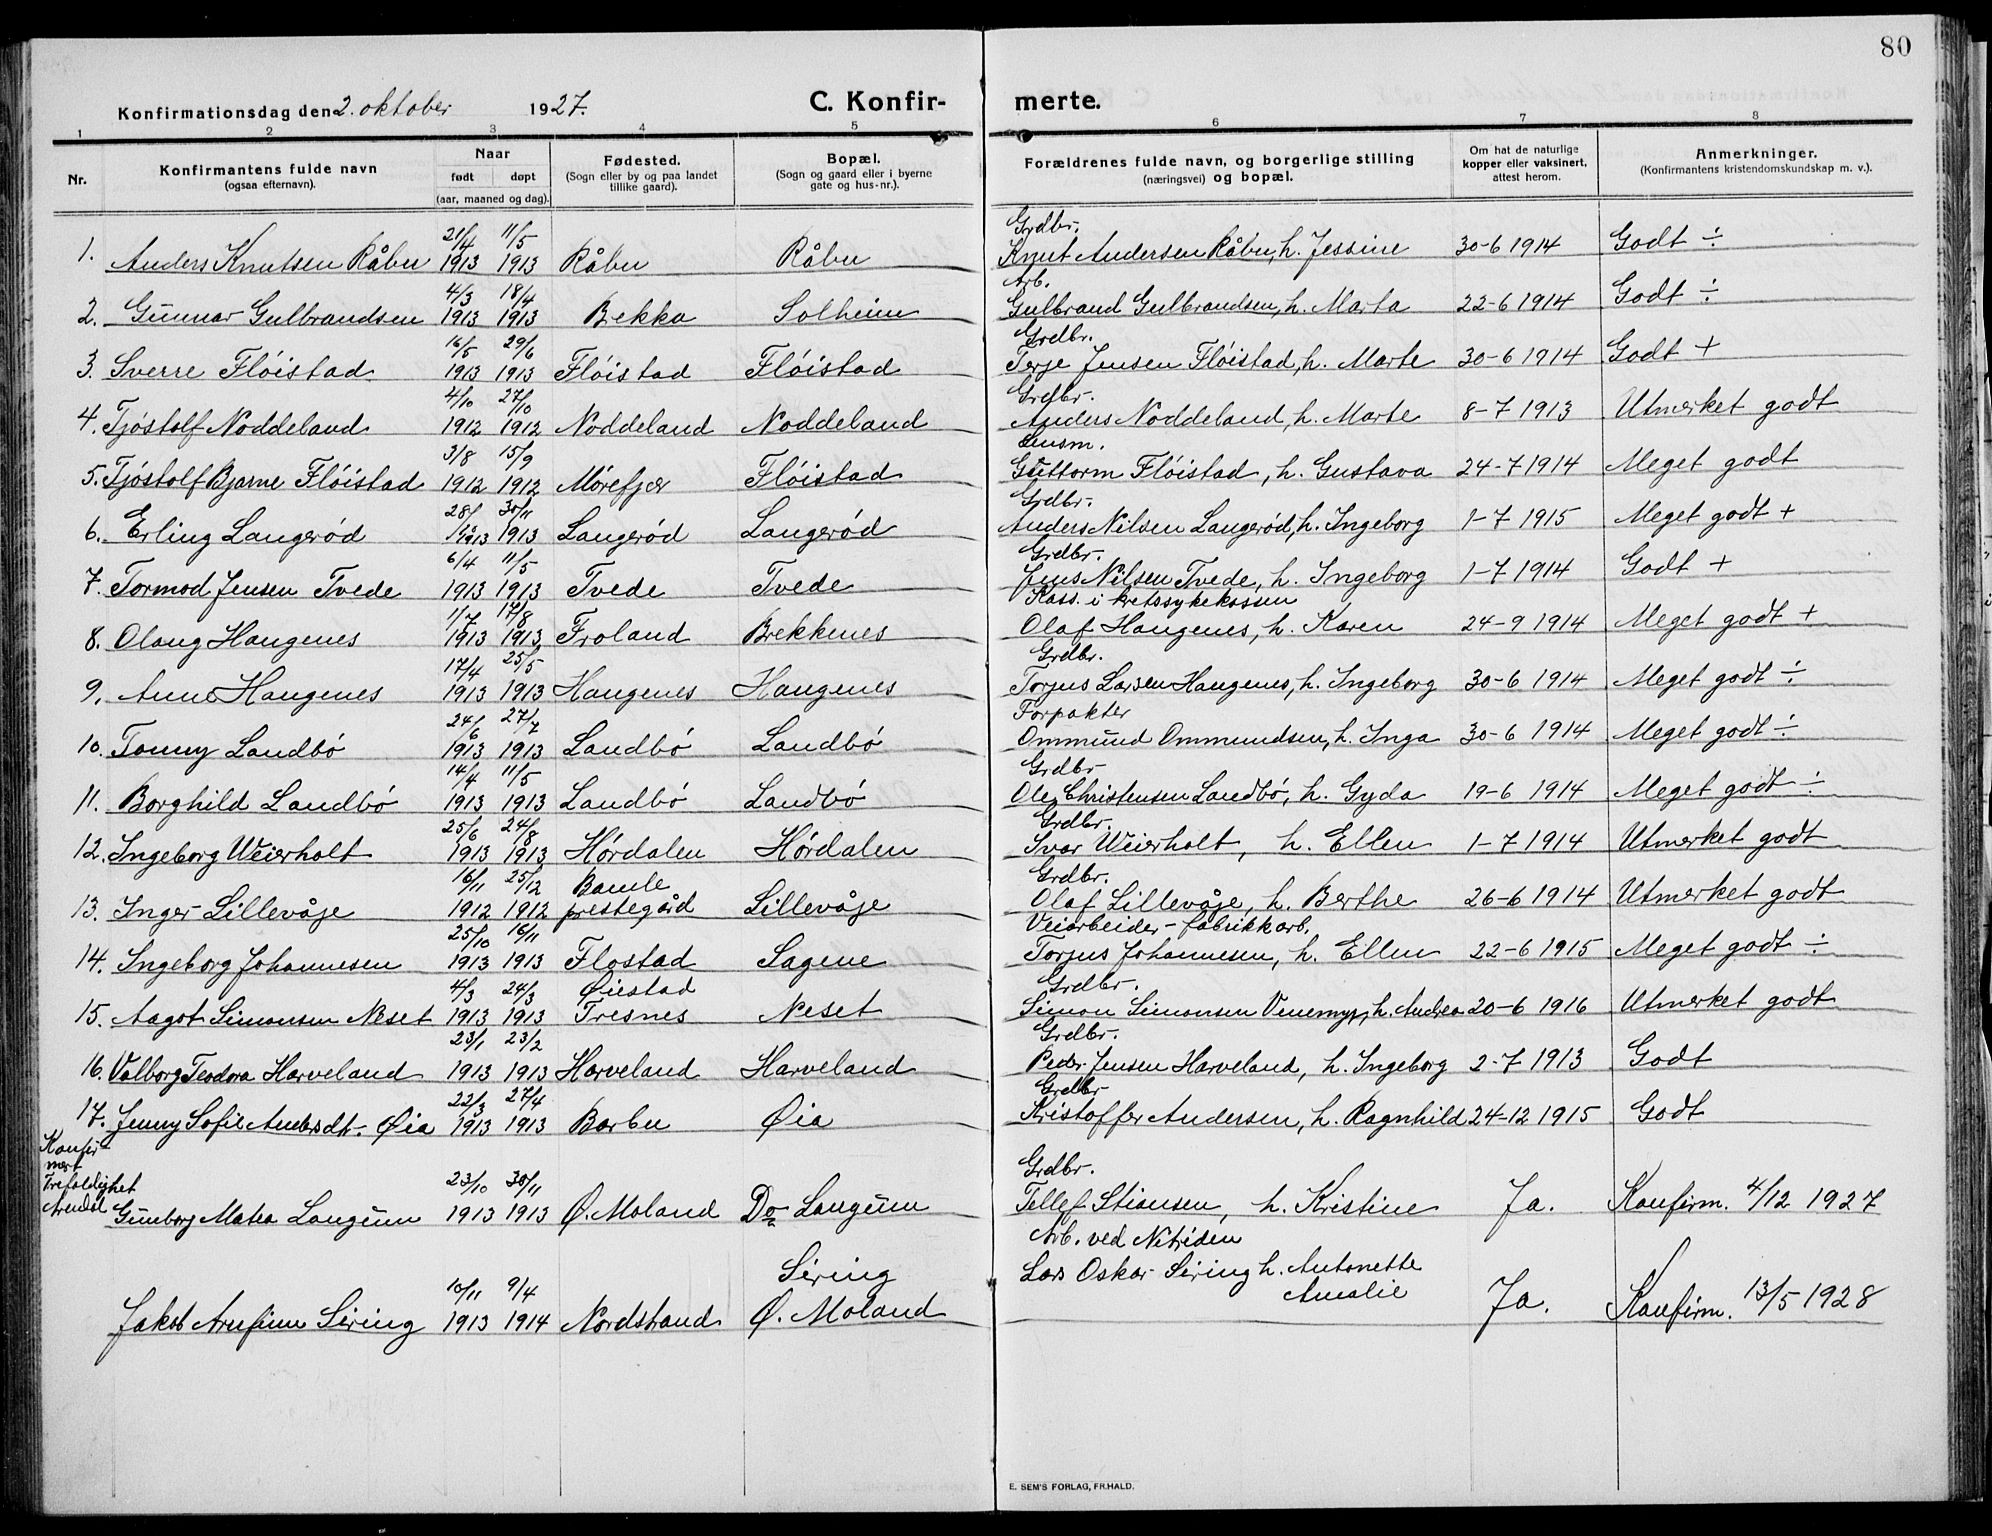 80
Konfirmationsdag den 2. oktober 1927.
C. Konfirmerte.
1 2 3 4 5 6 7 8
Nr.
Konfirmantens fulde navn
(ogsaa efternavn).
Naar
født døpt
(aar, maaned og dag).
Fødested.
(Sogn eller by og paa landet
tillike gaard).
Bopæl.
(Sogn og gaard eller i byerne
gate og hus-nr.).
Forældrenes fulde navn, og borgerlige stilling
(næringsvei) og bopæl.
Om hat de naturlige
kopper eller vaksinert,
attest herom.
Anmerkninger.
(Konfirmantens kristendomskundskap m. v.).
21/4 11/5 Grdbr.
1. Anders Knutsen Råbu 1913 1913 Råbu Råbu Knut Andersen Råbu, h. Jessine 30-6 1914 Godt ÷
4/3 18/4 Arb.
2. Gunnar Gulbrandsen 1913 1913 Bekka Solheim Gulbrand Gulbrandsen, h. Marta 22-6 1914 Godt ÷
16/5 29/6 Grdbr.
3. Sverre Flöistad 1913 1913 Flöistad Flöistad Terje Jensen Flöistad, h. Marte 30-6 1914 Godt +
4/10 27/10 Grdbr.
4. Tjöstolf Noddeland 1912 1912 Noddeland Noddeland Anders Noddeland, h. Marte 8-7 1913 Utmerket godt
3/8 15/9 Lensm.
5. Tjöstolf Bjarne Flöistad 1912 1912 Mörefjær Flöistad Guttorm Flöistad, h. Gustava 24-7 1914 Meget godt
28/ 30/11 Grdbr.
6. Erling Langerød 1913 1913 Langerød Langerød Anders Nilsen Langerød, h. Ingeborg 1-7 1915 Meget godt +
6/4 11/5 Grdbr.
7. Tormod Jensen Tvede 1913 1913 Tvede Tvede Jens Nilsen Tvede, h. Ingeborg 1-7 1914 Godt +
1/7 17/8 Kass. i kretssykekassen
8. Olaug Haugenes 1913 1913 Froland Brekkenes Olaf Haugenes, h. Karen 24-9 1914 Meget godt +
17/4 25/5 Grdbr.
9. Anne Haugenes 1913 1913 Haugenes Haugenes Torjus Larsen Haugenes, h. Ingeborg 30-6 1914 Meget godt ÷
24/6 27/7 Forpakter
10. Tonny Landbö 1913 1913 Landbö Landbö Ommund Ommundsen, h. Inga 30-6 1914 Meget godt ÷
14/4 11/5 Grdbr
11. Borghild Landbö 1913 1913 Landbö Landbö Ole Christensen Landbö, h. Gyda 19-6 1914 Meget godt ÷
25/6 24/8 Grdbr.
12. Ingeborg Weierholt 1913 1913 Hørdalen Hørdalen Ivar Weierholt, h. Ellen 1-7 1914 Utmerket godt
16/11 25/12 Bamle Grdbr.
13. Inger Lillevåje 1912 1912 prestegård Lillevåje Olaf Lillevåje, h. Berthe 26-6 1914 Utmerket godt
25/10 16/11 Veiarbeider - fabrikkarb.
14. Ingeborg Johannesen 1913 1913 Flostad Sagene Torjus Johannesen, h. Ellen 22-6 1915 Meget godt ÷
4/3 24/3 Øiestad Grdbr.
15. Aagot Simonsen Neset 1913 1913 Fresnes Neset Simon Simonsen Venemyr, h. Andrea 20-6 1916 Utmerket godt
23/1 23/2 Grdbr.
16. Valborg Teodora Harveland 1913 1913 Harveland Harveland Peder Jensen Harveland, h. Ingeborg 2-7 1913 Godt
22/3 27/4 Grdbr
17. Jenny Sofie Andersdt. Øia 1913 1913 Barbu Øia Kristoffer Andersen, h. Ragnhild 24-12 1915 Godt
Konfir-
mert
Trefoldighet
Arendal
23/10 30/11 Grdbr.
Gunborg Matea Langum 1913 1913 Ø. Moland Do Langum Tellef Stiansen, h. Kristine Ja. Konfirm. 4/12 1927
Arb. ved Nitriden
10/11 9/4 Sering Lars Oskar Sering h. Antonette
Amalie
Jakob Arnfinn Sering 1913 1914 Nordstrand Ø. Moland Ja. Konfirm. 13/5 1928
E. SEM'S FORLAG, FR.HALD.